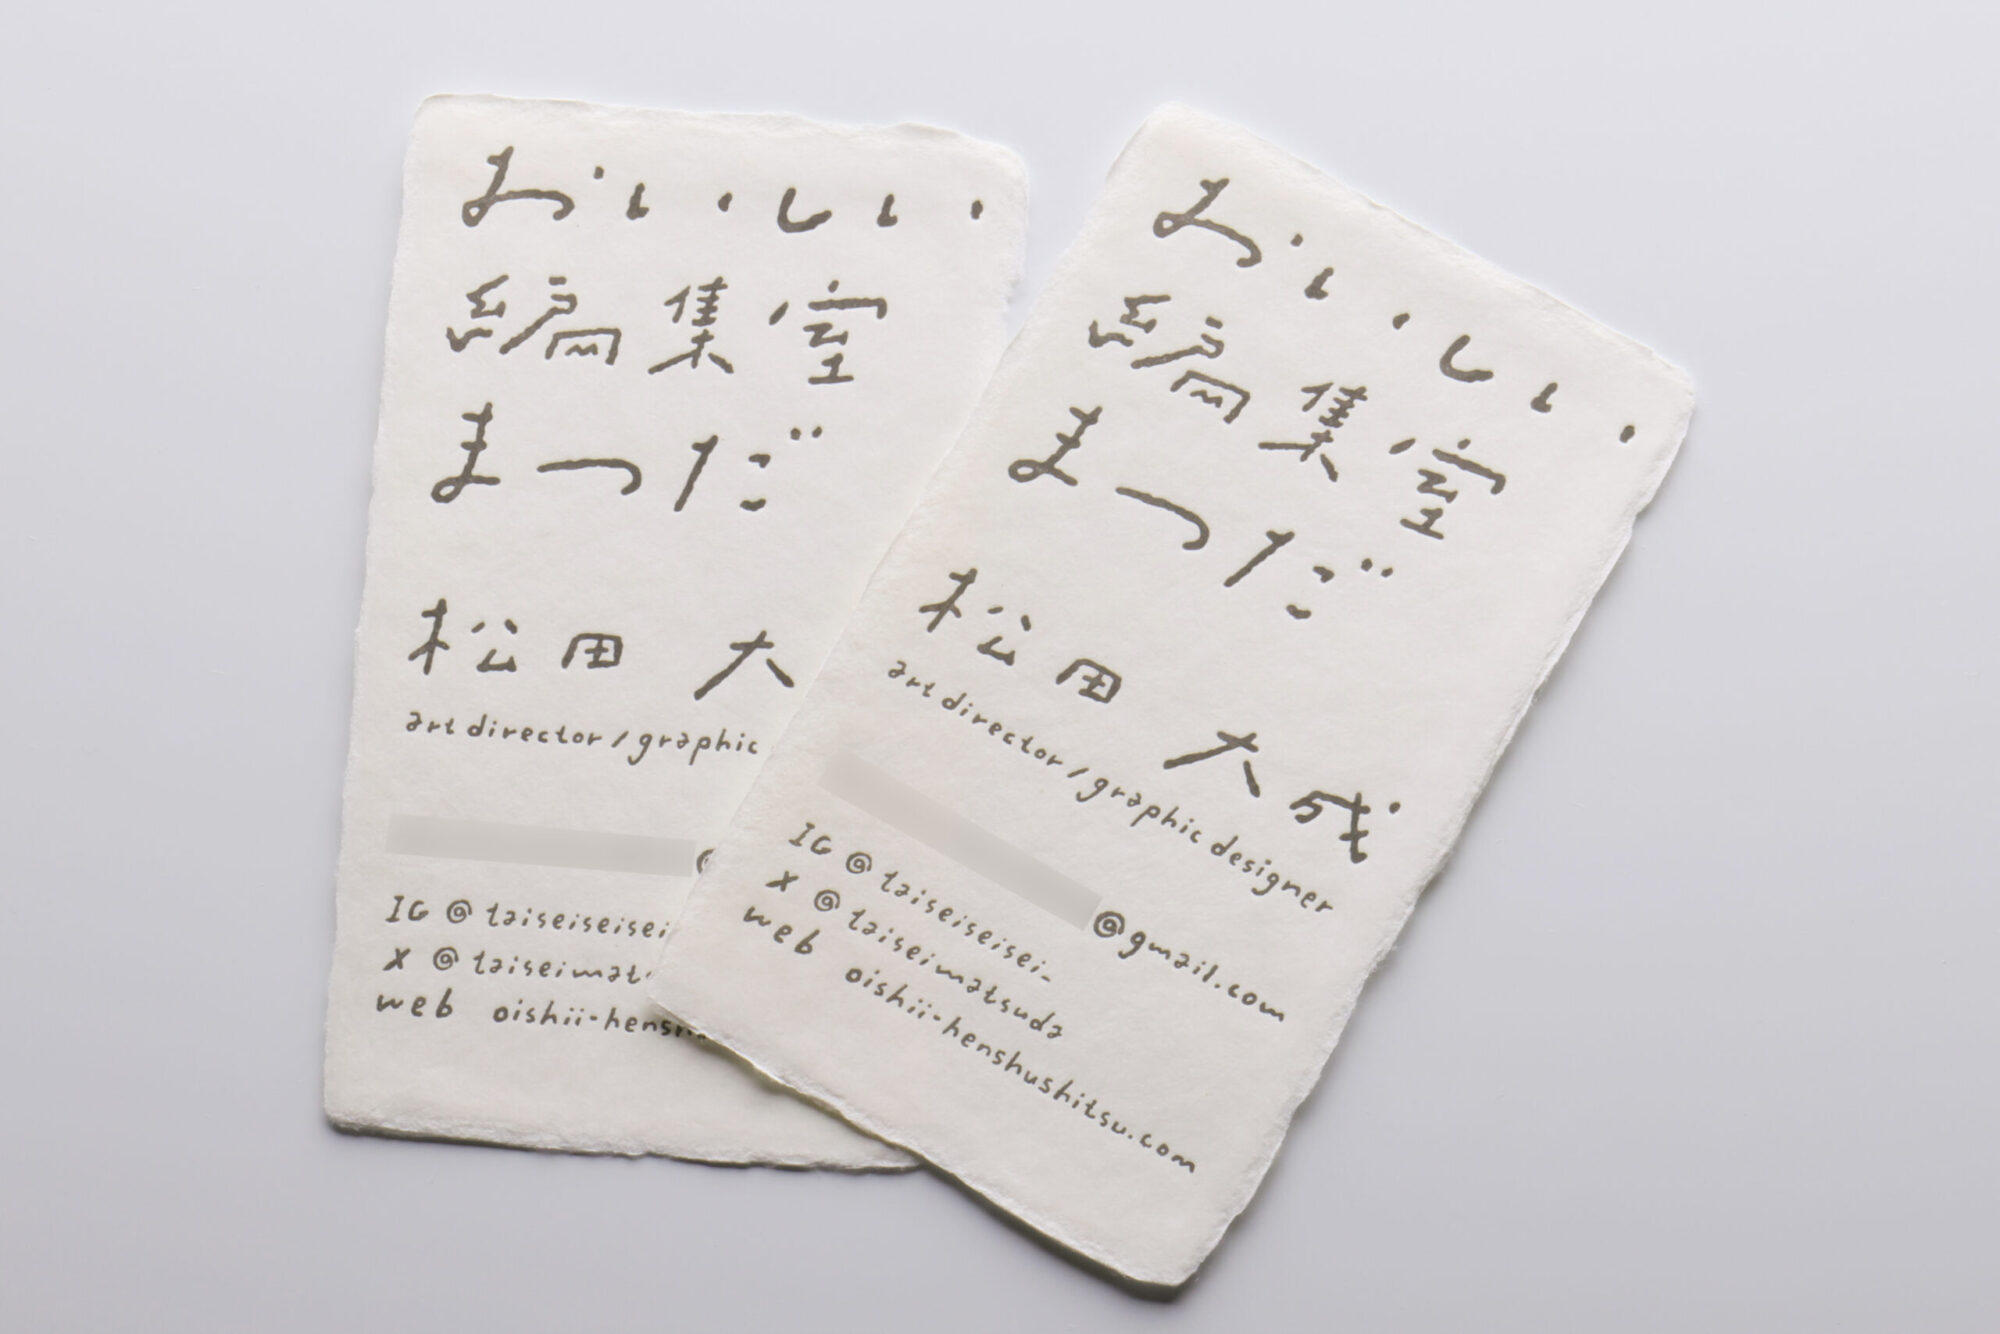 おいしい
編集室
まつだ
松田 大
art director / graphic
IG @taiseiseisei
X @taiseimats
web oishii-hensh
おいしい
編集室
まつだ
松田 大成
art director / graphic designer
@gmail.com
IG @taiseiseisei_
X @taiseimatsuda
web oishii-henshushitsu.com